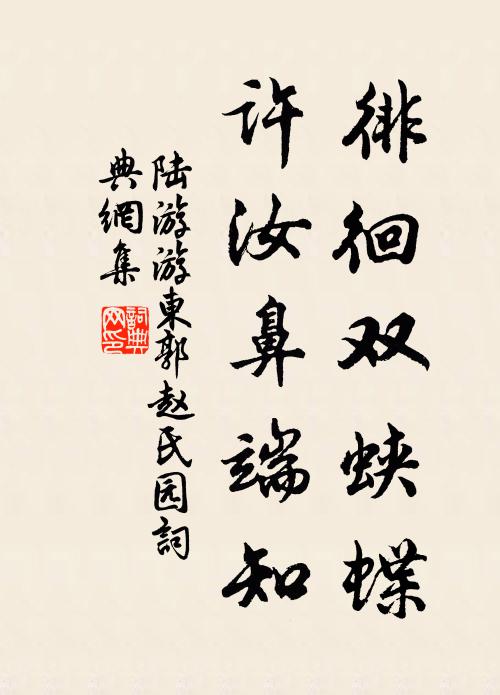 徘徊双蛱蝶
许汝鼻端知
陆游游東郭赵氏园詞
典網集
詞典網印